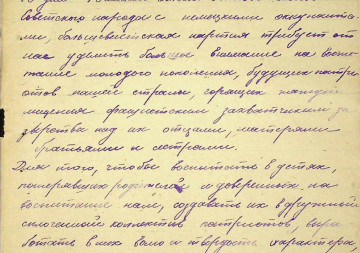 Советского народа с немецкими оккупанта-
ми, большевистская партия требует от
нас уделить большое внимание на воспи-
тание молодого поколения, будущих патри-
отов нашей страны, горящих жаждой
мщения фашистским захватчикам за
зверства над их отцами, матерями
братьями и сестрами.
Для того, чтобы воспитать в детях,
потерявших родителей и доверенных на
воспитание нам, создавать их в дружный
сплоченный коллектив патриотов, выра-
ботать в них волю и твердость характера,